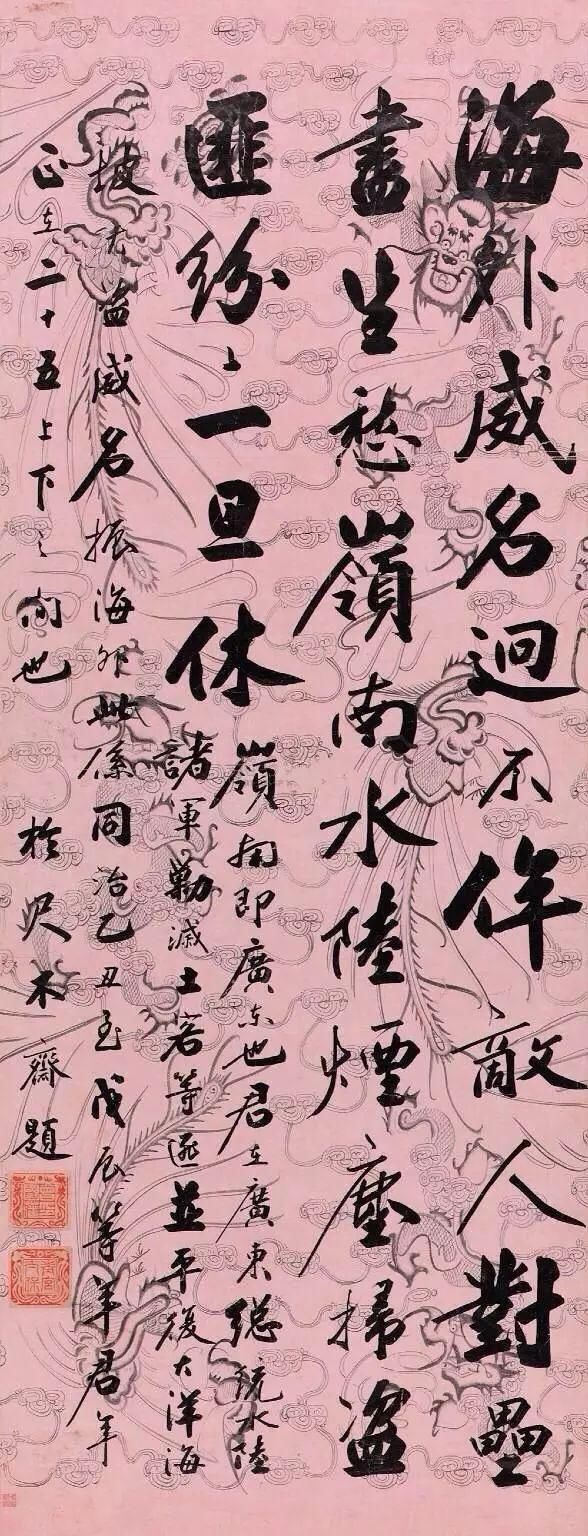 海外威名迥不侔敵人對壘
盡生愁嶺南水陸煙塵掃盜
匪紛〻一旦休
嶺南即廣東也君在廣東總統水陸
諸軍勦滅土客等匪並平後大洋海
披尤益威名振海外此係同治乙丑至戊辰等年君年
正在二十五上下之間也
於尺木齋題